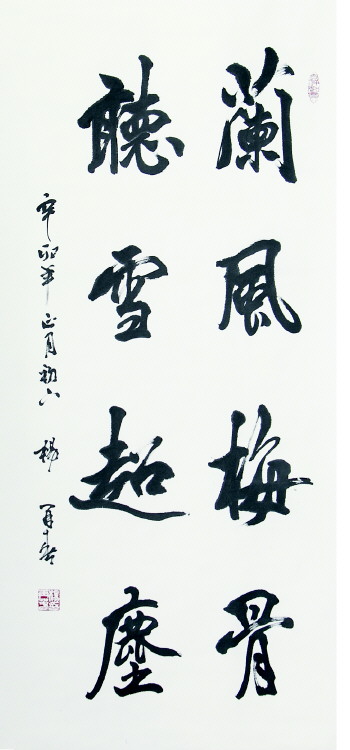 蘭風梅骨
聽雪超塵
辛卯年正月初六 楊